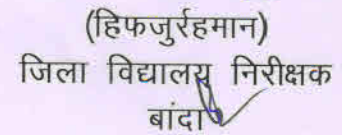 (हिफजुर्रहमान)
जिला विद्यालय निरीक्षक
बांदा